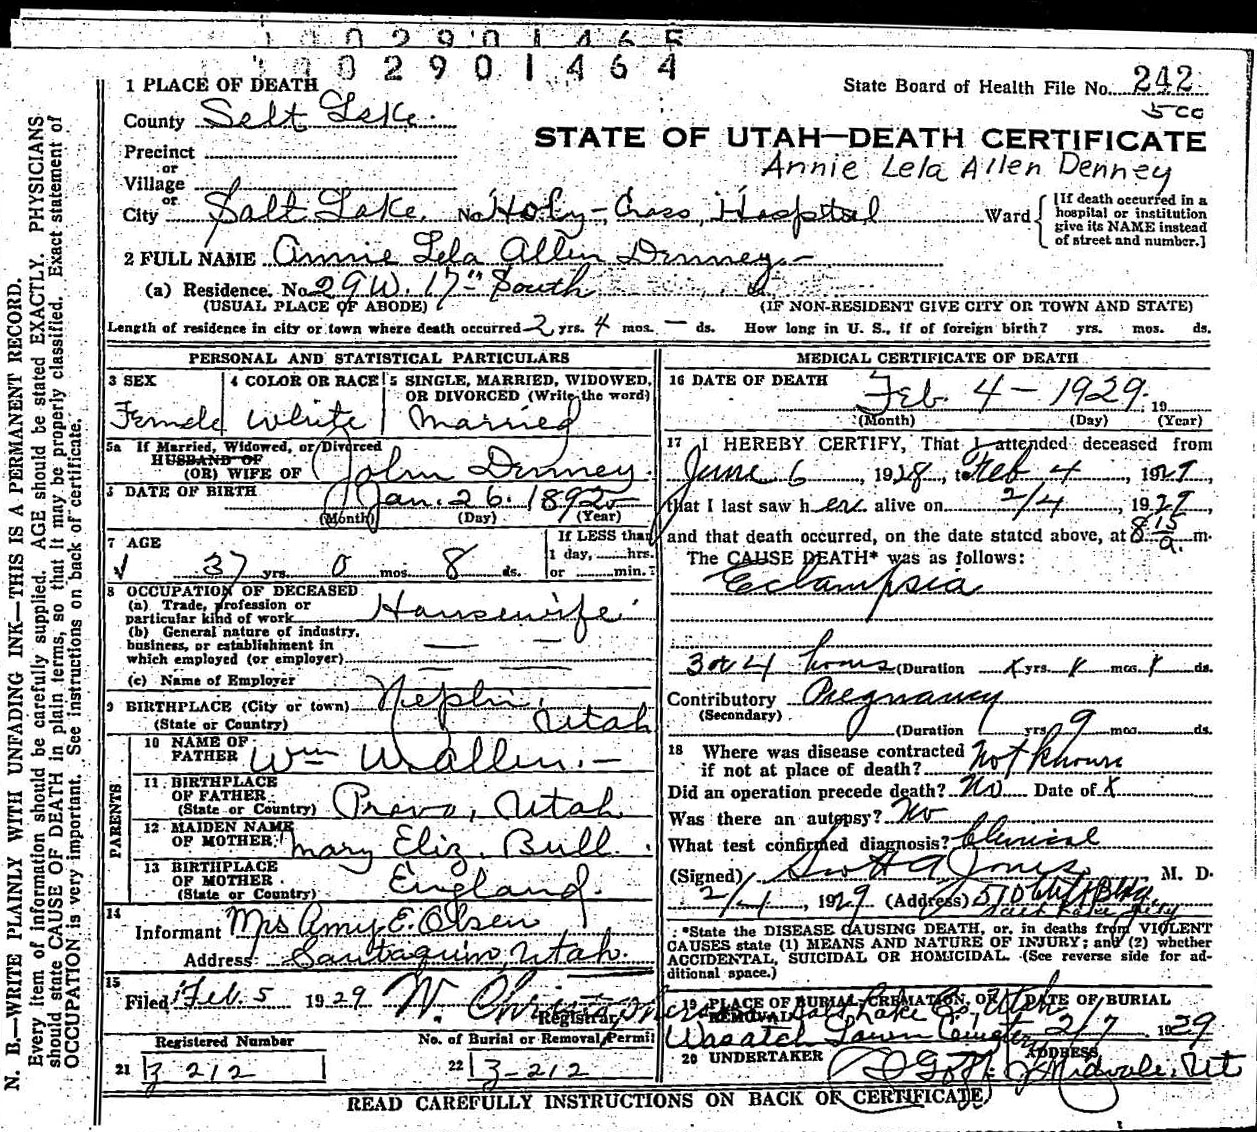 02901465
02901464
1 PLACE OF DEATH
State Board of Health File No. 242
500
County Salt Lake.
STATE OF UTAH—DEATH CERTIFICATE
Precinct
Annie Lela Allen Denney
or
Village
or
City Salt Lake. No. Holy-Cross Hospital Ward
[If death occurred in a hospital or institution give its NAME instead of street and number.]
2 FULL NAME Annie Lela Allen Denney.-
(a) Residence. No. 29 W. 17th South
(USUAL PLACE OF ABODE) (IF NON-RESIDENT GIVE CITY OR TOWN AND STATE)
Length of residence in city or town where death occurred 2 yrs. 4 mos. — ds. How long in U. S., if of foreign birth? yrs. mos. ds.
PERSONAL AND STATISTICAL PARTICULARS
3 SEX
Female
4 COLOR OR RACE
White
5 SINGLE, MARRIED, WIDOWED, OR DIVORCED (Write the word)
Married
5a If Married, Widowed, or Divorced
HUSBAND OF
(OR) WIFE OF John Denney.
6 DATE OF BIRTH Jan. 26. 1892
(Month) (Day) (Year)
7 AGE
37 yrs. 0 mos. 8 ds.
If LESS than
1 day, hrs.
or min.?
8 OCCUPATION OF DECEASED
(a) Trade, profession or
particular kind of work Housewife
(b) General nature of industry,
business, or establishment in
which employed (or employer)
(c) Name of Employer
9 BIRTHPLACE (City or town) Nephi,
(State or Country) Utah
PARENTS
10 NAME OF
FATHER Wm W Allen.-
11 BIRTHPLACE
OF FATHER
(State or Country) Provo, Utah
12 MAIDEN NAME
OF MOTHER Mary Eliz. Bull.
13 BIRTHPLACE
OF MOTHER
(State or Country) England.
14
Informant Mrs Amy E. Olsen
Address Santaquin, Utah.
15
Filed Feb. 5 1929 W. Christopherson
Registrar
Registered Number
21 3 212
No. of Burial or Removal Permit
22 3-212
MEDICAL CERTIFICATE OF DEATH
16 DATE OF DEATH Feb. 4 - 1929. 19
(Month) (Day) (Year)
17 I HEREBY CERTIFY, That I attended deceased from
June 6, 1928, to Feb 4, 1929,
that I last saw her alive on 2/4, 1929,
and that death occurred, on the date stated above, at 8 15 a. m.
The CAUSE DEATH* was as follows:
Eclampsia
3 or 4 hours (Duration x yrs. x mos x ds.
Contributory Pregnancy
(Secondary)
(Duration yrs 9 mos. ds.
18 Where was disease contracted
if not at place of death? Not known
Did an operation precede death? No Date of x
Was there an autopsy? No
What test confirmed diagnosis? Clinical
(Signed) Jones, M. D.
2/4, 1929 (Address) 510 Bldg.
Salt Lake City
*State the DISEASE CAUSING DEATH, or, in deaths from VIOLENT
CAUSES state (1) MEANS AND NATURE OF INJURY; and (2) whether
ACCIDENTAL, SUICIDAL OR HOMICIDAL. (See reverse side for ad-
ditional space.)
19 PLACE OF BURIAL, CREMATION, OR REMOVAL
Salt Lake Co Utah
Wasatch Lawn Cemetery
DATE OF BURIAL
2/7 1929
20 UNDERTAKER
ADDRESS
Midvale, Ut
READ CAREFULLY INSTRUCTIONS ON BACK OF CERTIFICATE)
N. B.—WRITE PLAINLY WITH UNFADING INK—THIS IS A PERMANENT RECORD.
Every item of information should be carefully supplied. AGE should be stated EXACTLY. PHYSICIANS
should state CAUSE OF DEATH in plain terms, so that it may be properly classified. Exact statement of
OCCUPATION is very important. See instructions on back of certificate.